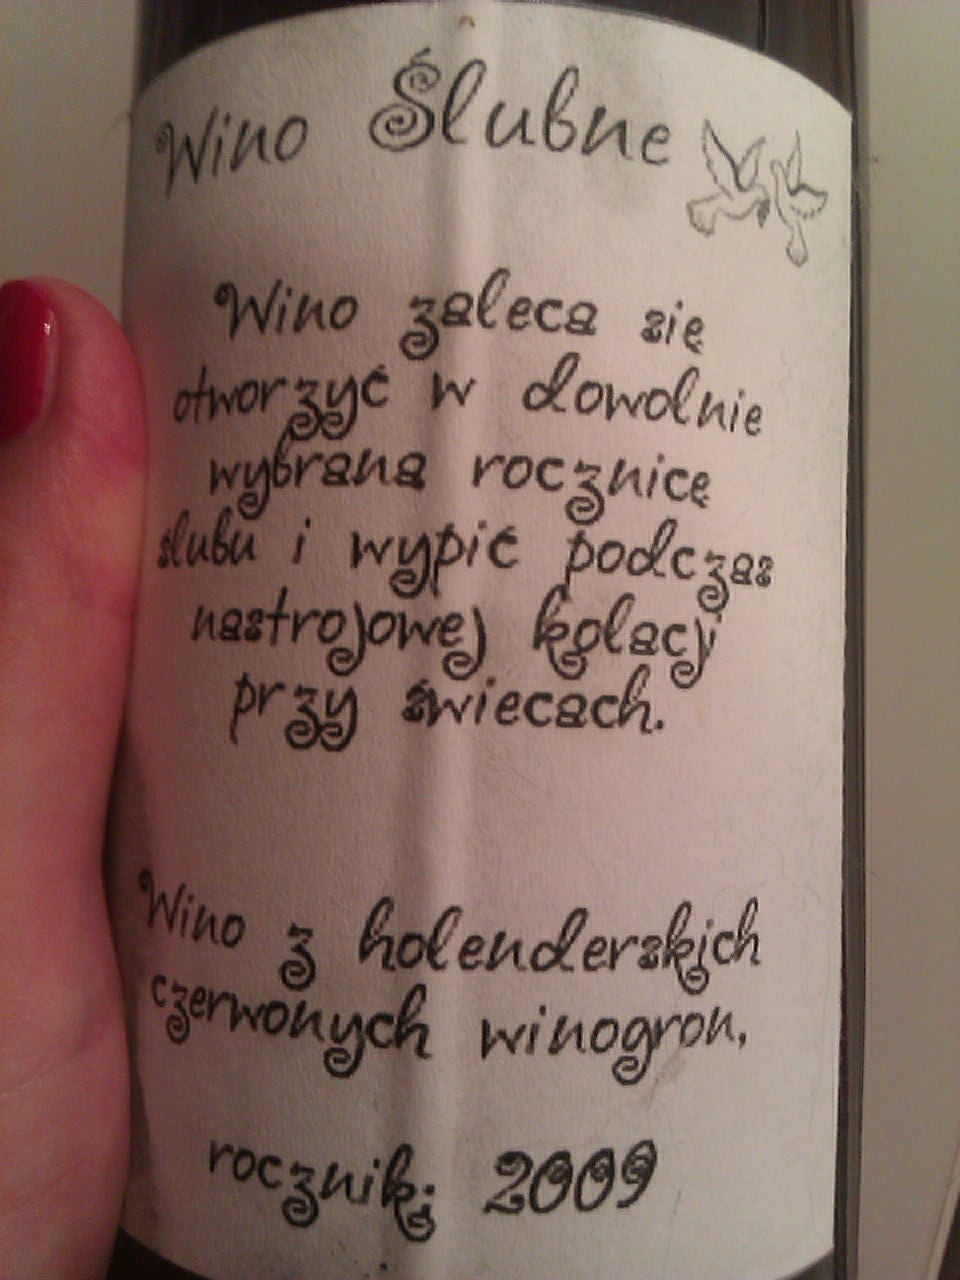 Wino Ślubne
Wino zaleca się
otworzyć w dowolnie
wybraną rocznicę
ślubu i wypić podczas
nastrojowej kolacji
przy świecach.
Wino z holenderskich
czerwonych winogron,
rocznik: 2009